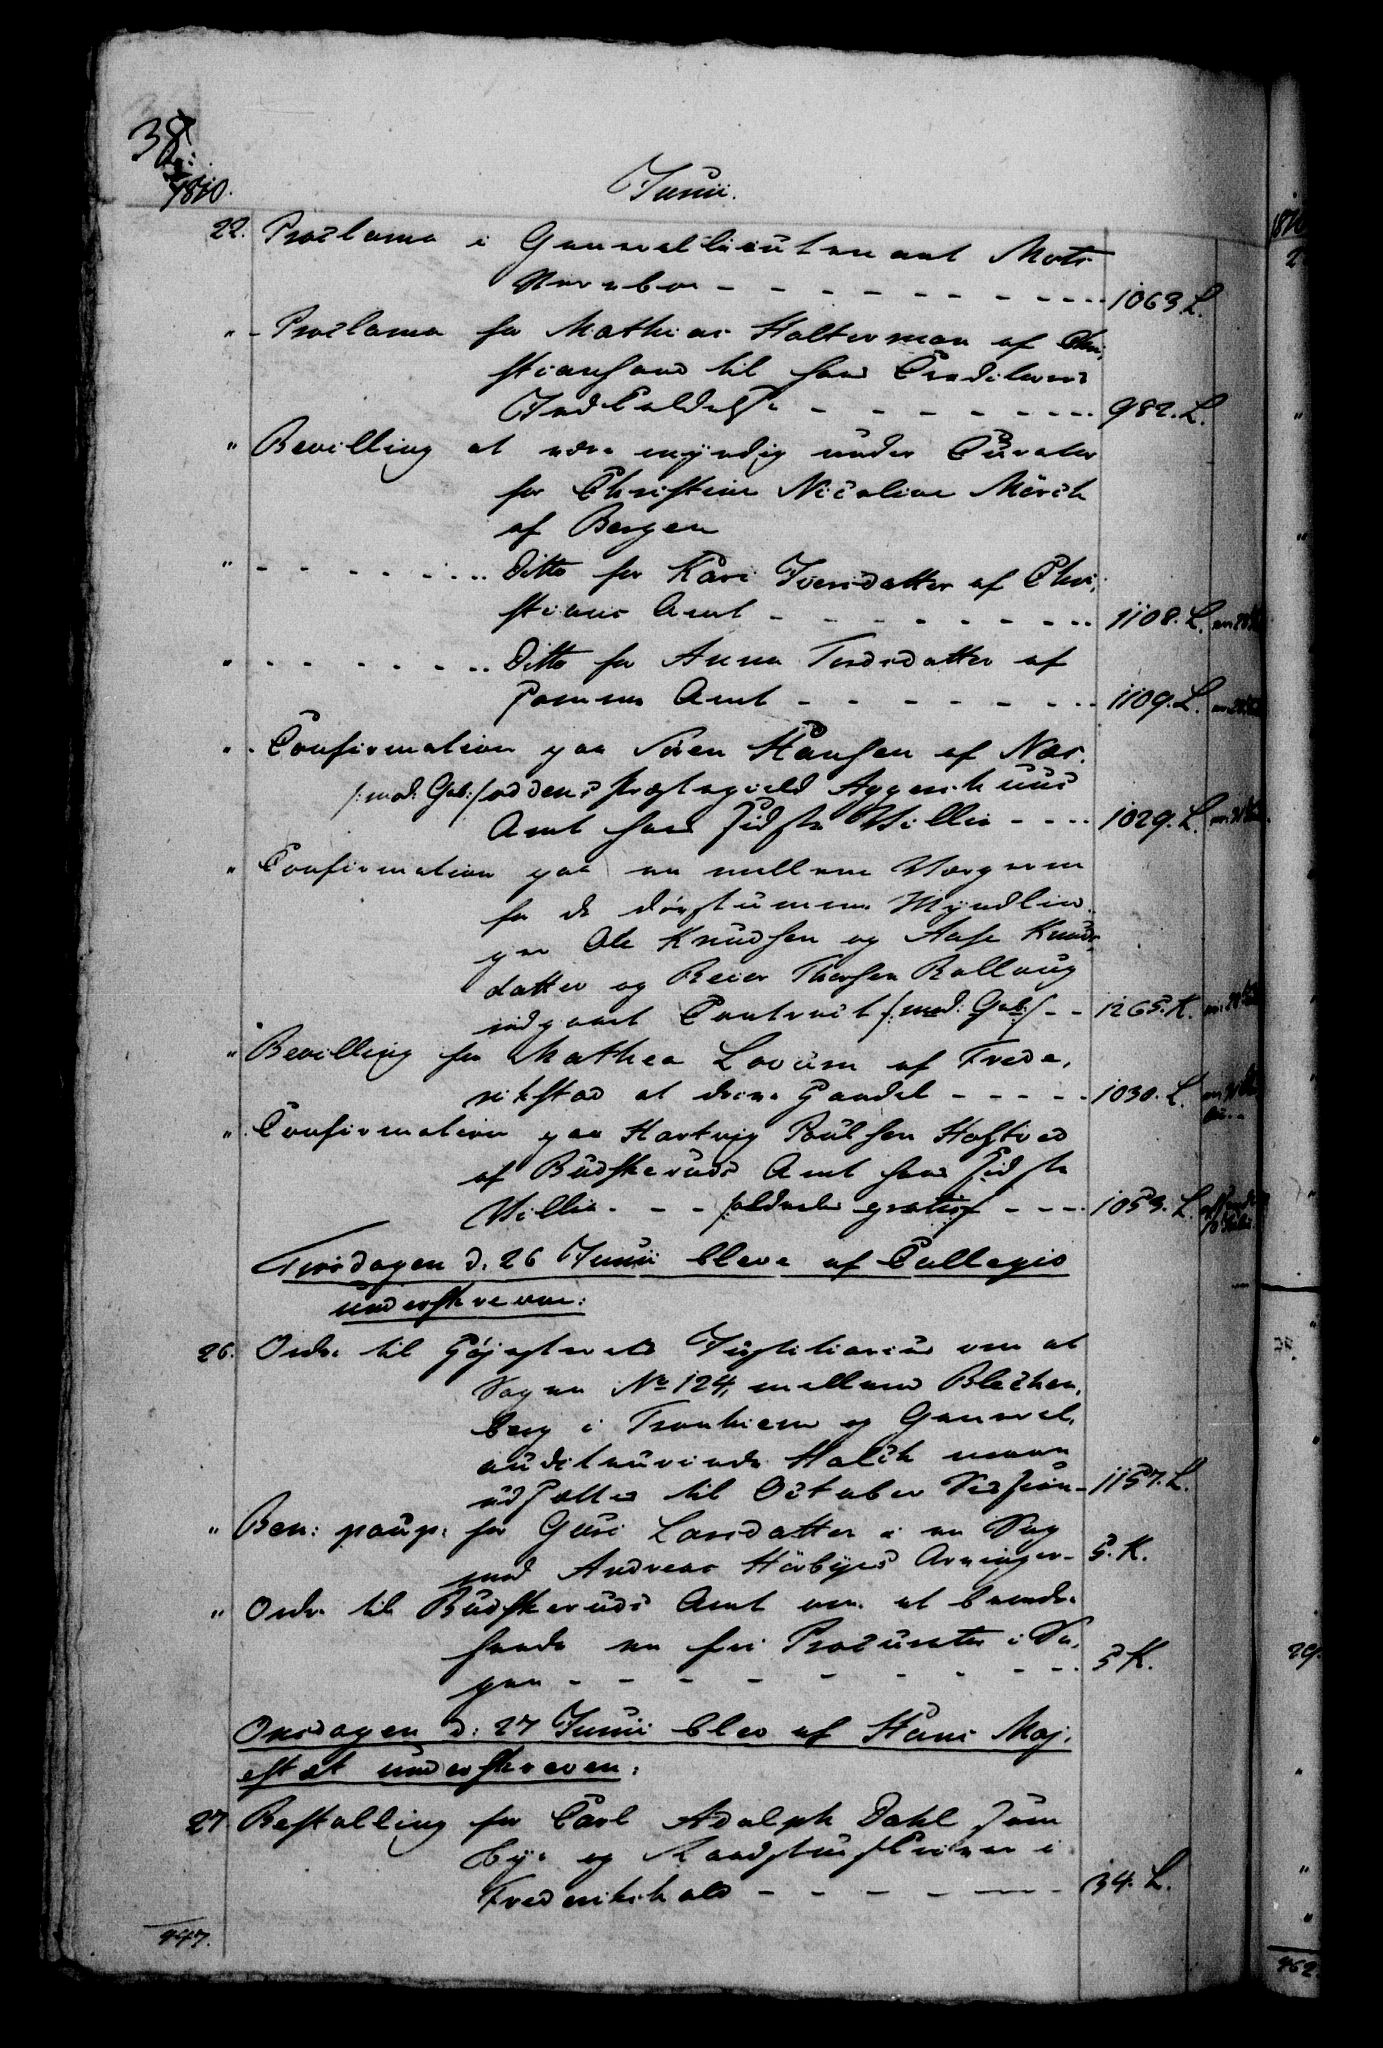 38
1810. Junii.
22. Proclama i Generallieutenant Mots
- - - - 1063 L.
" Proclama for Mathias Halterman af Chri,
stiansand til hans Creditorers
Indkaldelse - - - - 982. L.
" Bevilling at være myndig under Curator
for Christine Nicoline Mörch
af Bergen
" - - - - Ditto for Kari Iversdatter af Chri,
stians Amt - - - - 1108. L.
" - - - - Ditto for Anna Tordsdatter af
Amt - - - - 1109. L.
" Confirmation paa Sören Hansen af Næs.
/:med: Geb:/ oddens Præstegield Aggershuus
Amt hans sidste Villie - - - 1029. L.
" Confirmation paa en mellem Værgerne
for de døvstumme Myndlin,
ger Ole Knudsen og Aase Knuds,
datter og Reier Thorsen Rollaug
indgaaet Contract /:med: Geb:/ - - 1265. K.
" Bevilling for Mathea Lovum af Frede,
rikstad at drive Handel - - - - 1030. L.
" Confirmation paa Hartvig Poulsen Hoftved
af Budskeruds Amt hans sidste
Villie - - - /aldeles gratis/ - - - 1053. L.
Tirsdagen d. 26 Junii bleve af Collegio
underskrevne:
26. Ordre til Høiesterets Justitiarius om at
Sagen No 124, mellem Blechen,
berg i Tronhiem og General,
auditeurinde Halck maae
udsættes til October Session - 1157. L.
" Ben: paup: for Guri Larsdatter i en Sag
med Andreas Hörbyes Arvinger - 5. K.
" Ordre til Budskeruds Amt om at beord,
hende en fri Procurator i Sa,
gen - - - - 5 K.
Onsdagen d: 27 Junii blev af Hans Maj,
estæt underskreven:
27 Bestalling for Carl Adolph Dahl som
Bye og Raadstueskriver i
Frederikshald - - - - 34. L.
947.